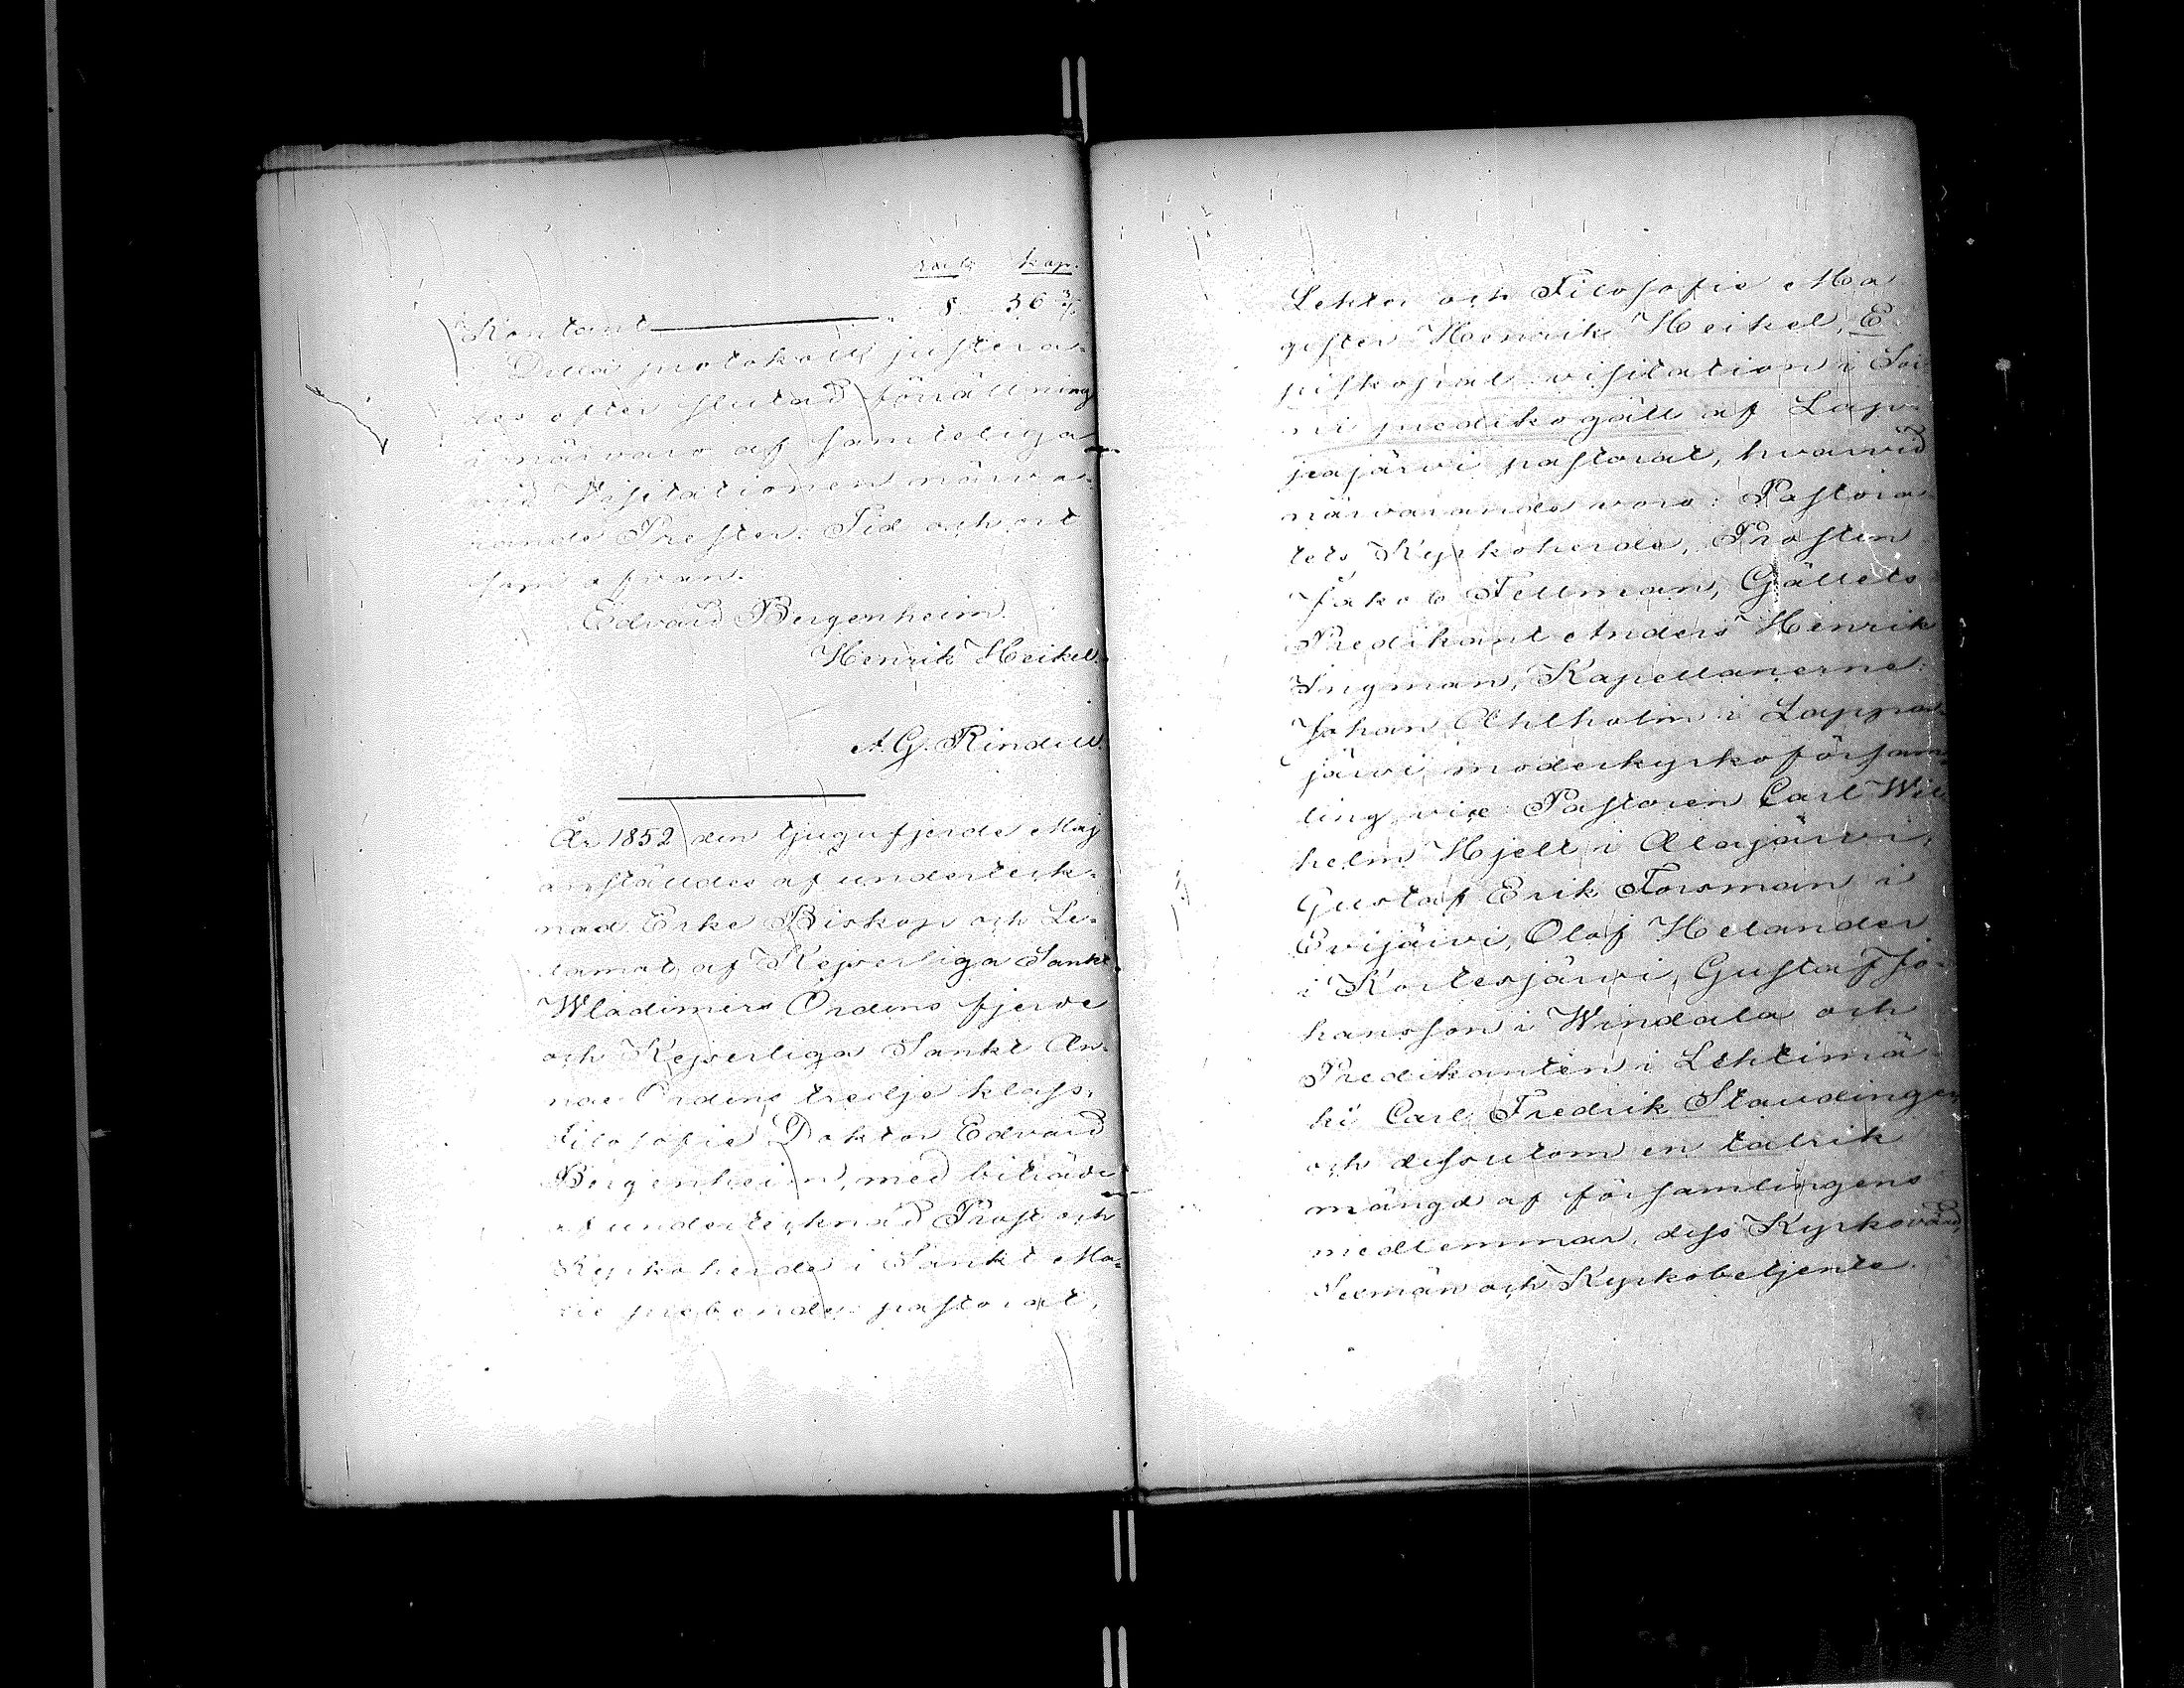 rub kop.
Kontant 8. 36 3/7
Detta protokoll justera-
des efter slutad förrättning
i närvaro af samteliga
vid Visitationen närva-
rande Prester. Tid och ort
som ofvan.
Edvard Bergenheim.
Henrik Heikel.
A. G. Rindell.
År 1852 den tjugufjerde Maj
anställdes af underteck-
nad Erke Biskop och Le-
damot af Kejserliga Sankt
Wladimirs Ordens fjerde
och Kejserliga Sankt An-
nae Ordens tredje klass,
Filosofie Doktor Edvard
Bergenheim, med biträde
af undertecknad Prost och
Kyrkoherde i Sankt Ma-
rie prebende pastorat,
Lektor och Filosofie Ma
gister Henrik Heikel, E
piskopal visitation i Soi
ni predikogäll af Lap-
pajärvi pastorat, hvarvid
närvarande voro: Pastora-
tets Kyrkoherde, Prosten
Jakob Fellman, Gällets
Predikant Anders Henrik
Ingman, Kapellanerne:
Johan Ahlholm i Lappa-
järvi moderkyrkoförsam-
ling, vice Pastoren Carl Wil
helm Hjelt i Alajärvi,
Gustaf Erik Forsman i
Evijärvi, Olof Helander
i Kortesjärvi, Gustaf Jo-
hansson i Windala och
Predikanten i Lehtimä-
ki Carl Fredrik Staudinger,
och dessutom en talrik
mängd af församlingens
medlemmar, dess Kyrkovärd,
Sexmän och Kyrkobetjente.